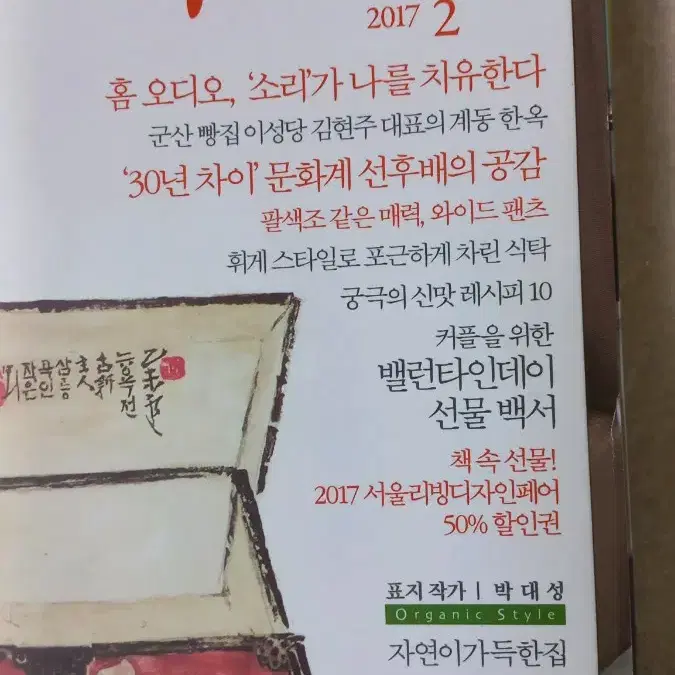 2017 2
홈 오디오, ‘소리’가 나를 치유한다
군산 빵집 이성당 김현주 대표의 계동 한옥
‘30년 차이’ 문화계 선후배의 공감
팔색조 같은 매력, 와이드 팬츠
휘게 스타일로 포근하게 차린 식탁
궁극의 신맛 레시피 10
커플을 위한
밸런타인데이
선물 백서
책 속 선물!
2017 서울리빙디자인페어
50% 할인권
표지 작가 | 박대성
Organic Style
자연이가득한집